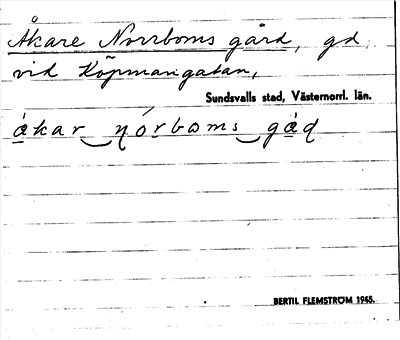 Åkare Norrboms gård, gd,
vid Köpmangatan,
Sundsvalls stad, Västernorrl. län.
åkar‿nórboms‿gåd
BERTIL FLEMSTRÖM 1945.